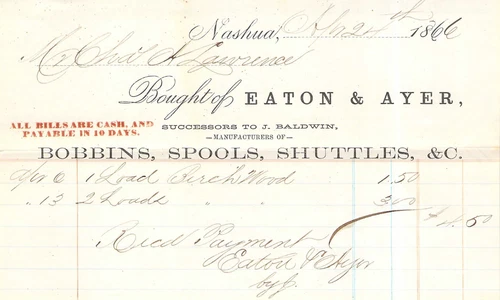 Nashua, Ap 24th 1866
Mr Chas A Lawrence
Bought of EATON & AYER,
ALL BILLS ARE CASH, AND
PAYABLE IN 10 DAYS.
SUCCESSORS TO J. BALDWIN,
—MANUFACTURERS OF—
BOBBINS, SPOOLS, SHUTTLES, &C.
Apr 6 1 Load Birch Wood 1.50
" 13 2 Loads " " 3.00
$4.50
Recd Payment
Eaton & Ayer
by